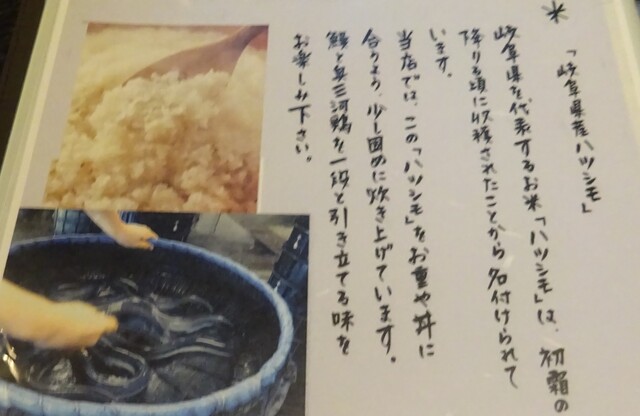 米
「岐阜県産ハツシモ」
岐阜県を代表するお米「ハツシモ」は、初霜の
降りる頃に収穫されたことから名付けられて
います。
当店では、この「ハツシモ」をお重や丼に
合うよう、少し固めに炊き上げています。
鰻と奥三河鶏を一段と引き立てる味を
お楽しみ下さい。